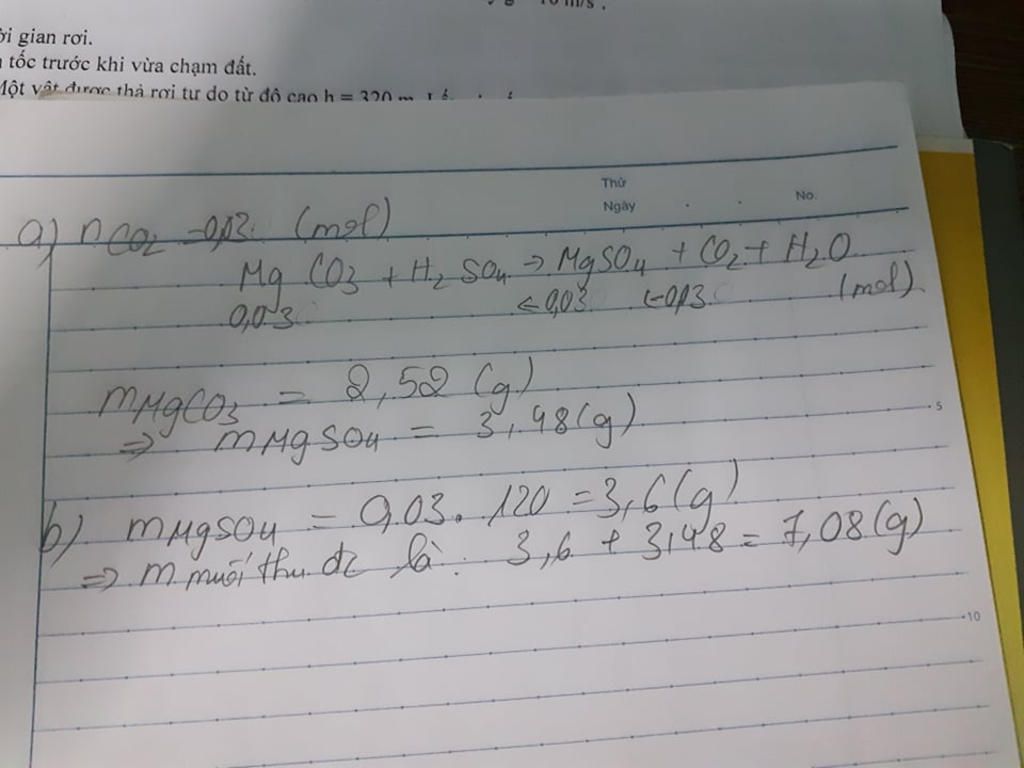 g = 10 m/s².
ời gian rơi.
n tốc trước khi vừa chạm đất.
Một vật được thả rơi tự do từ độ cao h = 320 m
Thứ
Ngày
No.
a) nCO2 = 0,03 (mol)
MgCO3 + H2SO4 → MgSO4 + CO2 + H2O
0,03 ← 0,03 ← 0,03 (mol)
mMgCO3 = 2,52 (g)
⇒ mMgSO4 = 3,48 (g)
5
b) mMgSO4 = 0,03 . 120 = 3,6 (g)
⇒ m muối thu đc là: 3,6 + 3,48 = 7,08 (g)
10